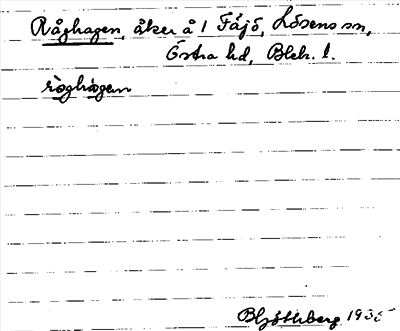 Råghagen, åker å 1 Fäjö, Lösens sn,
Östra hd, Blek. l.
ròghàgen
1935